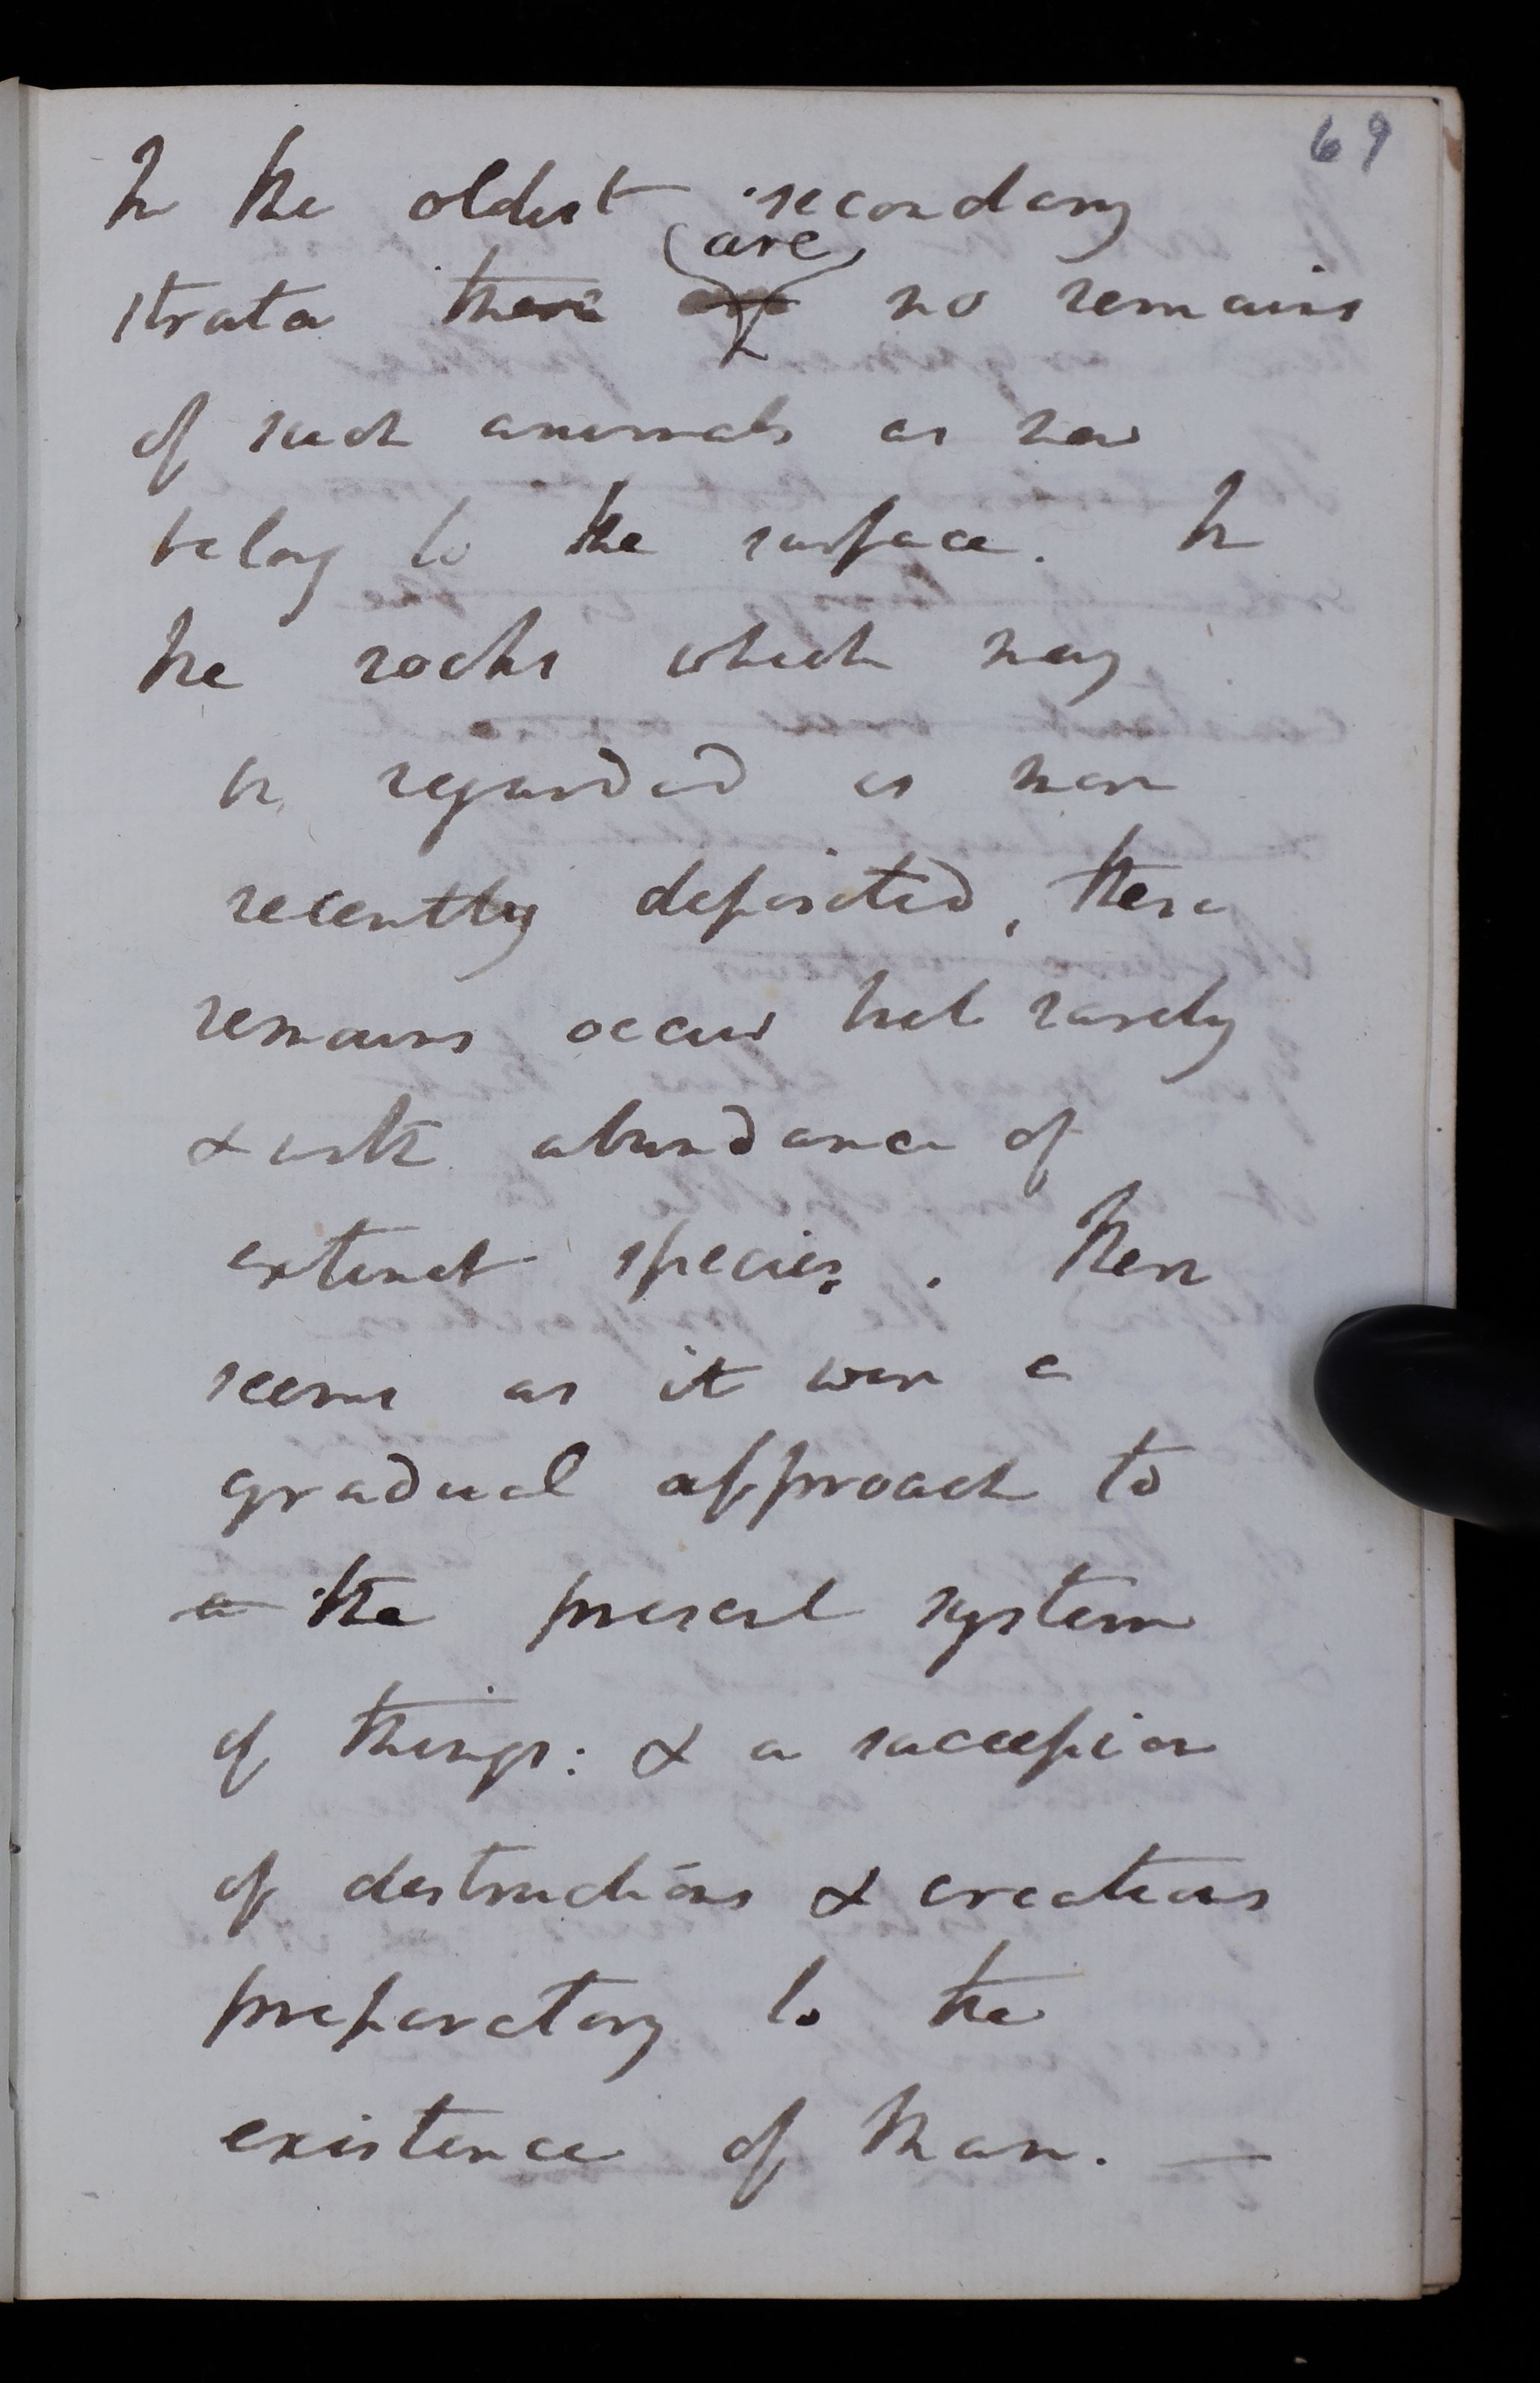 69
In the oldest secondary
are
strata there are no remains
of such animals as now
belong to the surface. In
the rocks which may
be regarded as more
recently deposited, these
remains occur but rarely
& with abundance of
extinct species. There
seems as it were a
gradual approach to
a the present system
of things: & a succession
of destructions & creations
preparatory to the
existence of Man. —